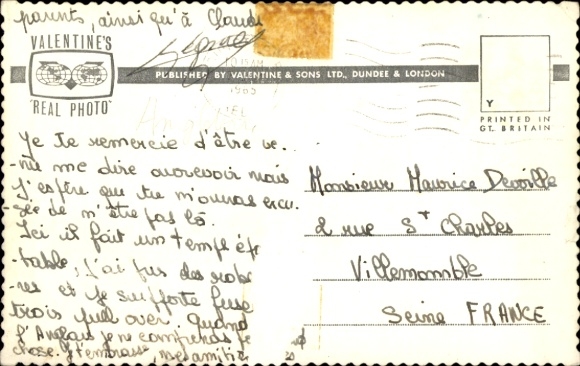 parents, ainsi qu'à Claud
VALENTINE'S
"REAL PHOTO"
PUBLISHED BY VALENTINE & SONS LTD., DUNDEE & LONDON
Y
PRINTED IN
GT. BRITAIN
Je te remercie d'être ve-
-nue me dire aurevoir mais
J'espère que tu m'auras excu
-sée de n'être pas là.
Ici il fait un temps ép
table, j'ai pris des robe
et je supporte
trois pull over quand
L'Anglais je ne comprends
chose. J't'embrasse, mes amitié
Monsieur Maurice Devoille
2 rue St Charles
Villemomble
Seine FRANCE